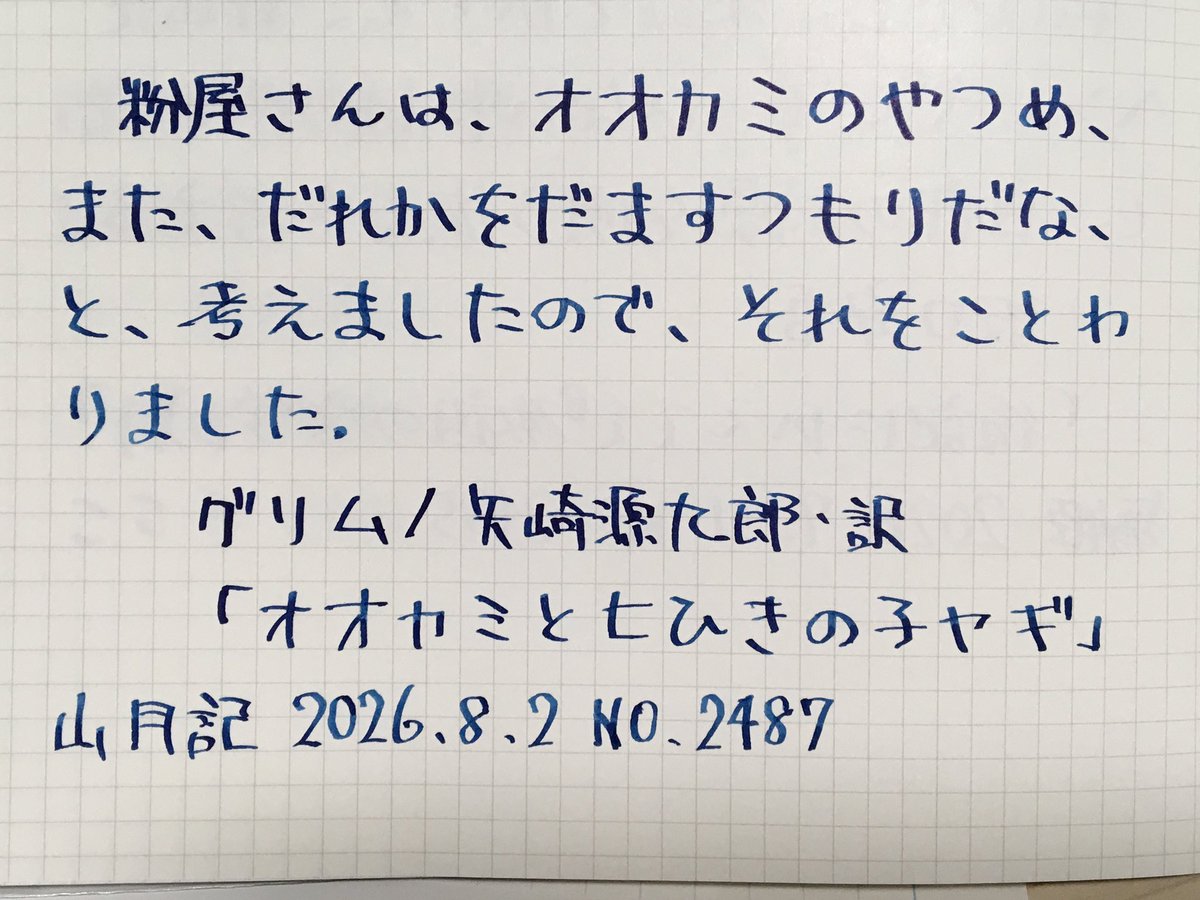 粉屋さんは、オオカミのやつめ、
また、だれかをだますつもりだな、
と、考えましたので、それをことわ
りました。
グリム/矢崎源九郎・訳
「オオカミと七ひきの子ヤギ」
山月記 2026.8.2 NO.2487